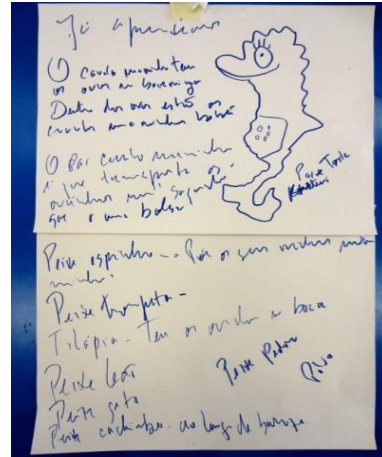 Já aprendemos
O cavalo marinho tem
os ovos na barriga
Dentro dos ovos estão os
cavalos marinhos bebés
O Pai cavalo marinho
é que transporta os
ovinhos
que é uma bolsa
Peixe
Peixe espinho -> Põe os seus ovinhos num
ninho.
Peixe trompeta -
Tilápia - Tem os ovinhos na boca
Peixe leão
Peixe Pedra
Peixe gato
Polvo
Peixe cachimbo - ao longo da barriga